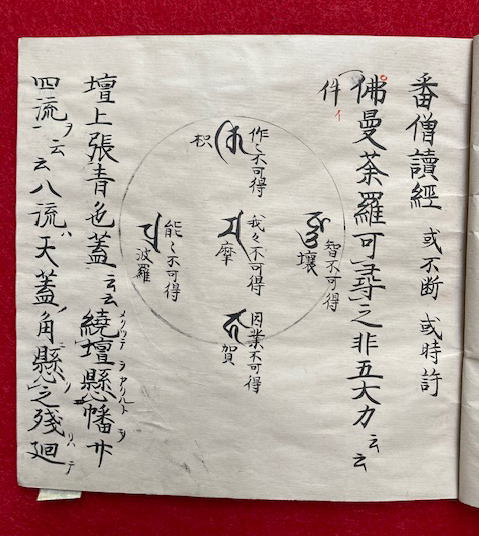 番僧讀經 或不断 或時許
件佛曼荼羅可尋之非五大力云云
イ
智不可得
壤
作々不可得
枳
我々不可得
摩
因業不可得
賀
能々不可得
波羅
壇上張青色蓋云云繞壇懸幡廿
メクツテ ヲ
四流ヲ云云八流ハ天蓋ノ角ニ懸之残廻